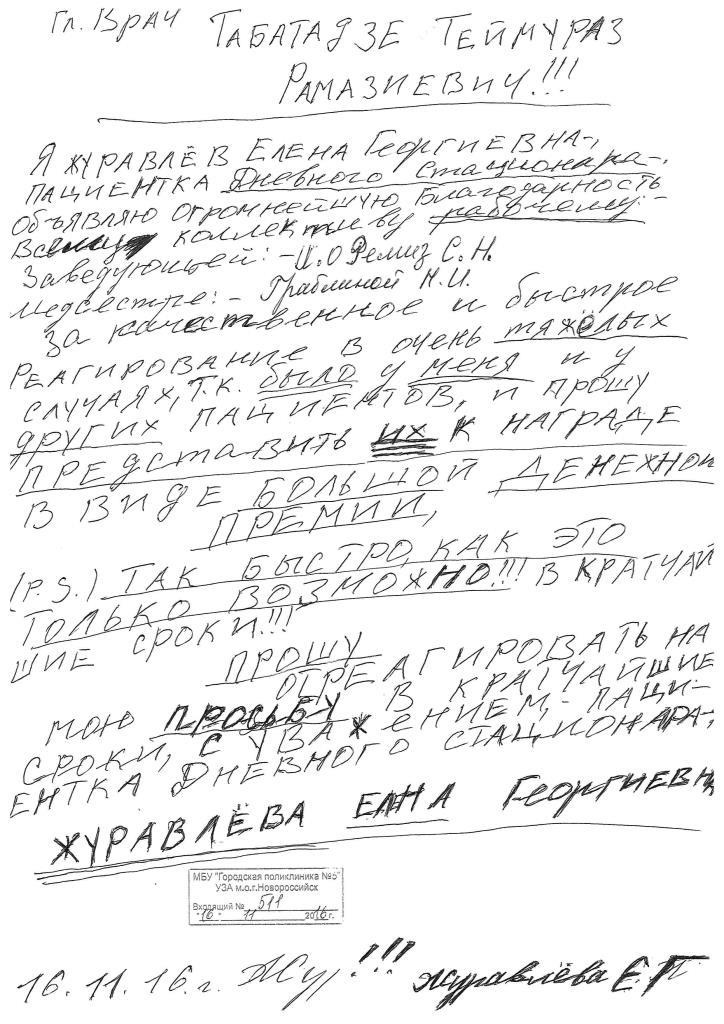 Гл. Врач Табатадзе Теймураз
Рамазиевич!!!
Я Журавлёв Елена Георгиевна-,
пациентка Дневного стационара-,
Объявляю огромнейшую Благодарность
Всему коллективу рабочему:-
Заведующей:- И.О Ремиз С.Н.
Медсестре:- Граблиной Н.И.
За качественное и быстрое
Реагирование в очень тяжёлых
случаях, т.к. было у меня и у
других пациентов, и прошу
представить их к награде
в виде большой денежной
премии,
(P.S.) Так быстро, как это
только возможно!!! в кратчай
шие сроки!!!
Прошу
отреагировать на
мою просьбу в кратчайшие
сроки, с уважением,- паци-
ентка Дневного стационара-,
Журавлёва Елна Георгиевн
МБУ "Городская поликлиника №5"
УЗА м.о.г.Новороссийск
Входящий № 511
"16" 11 2016г.
16.11.16.г. Жур!!! Журавлёва Е.Г